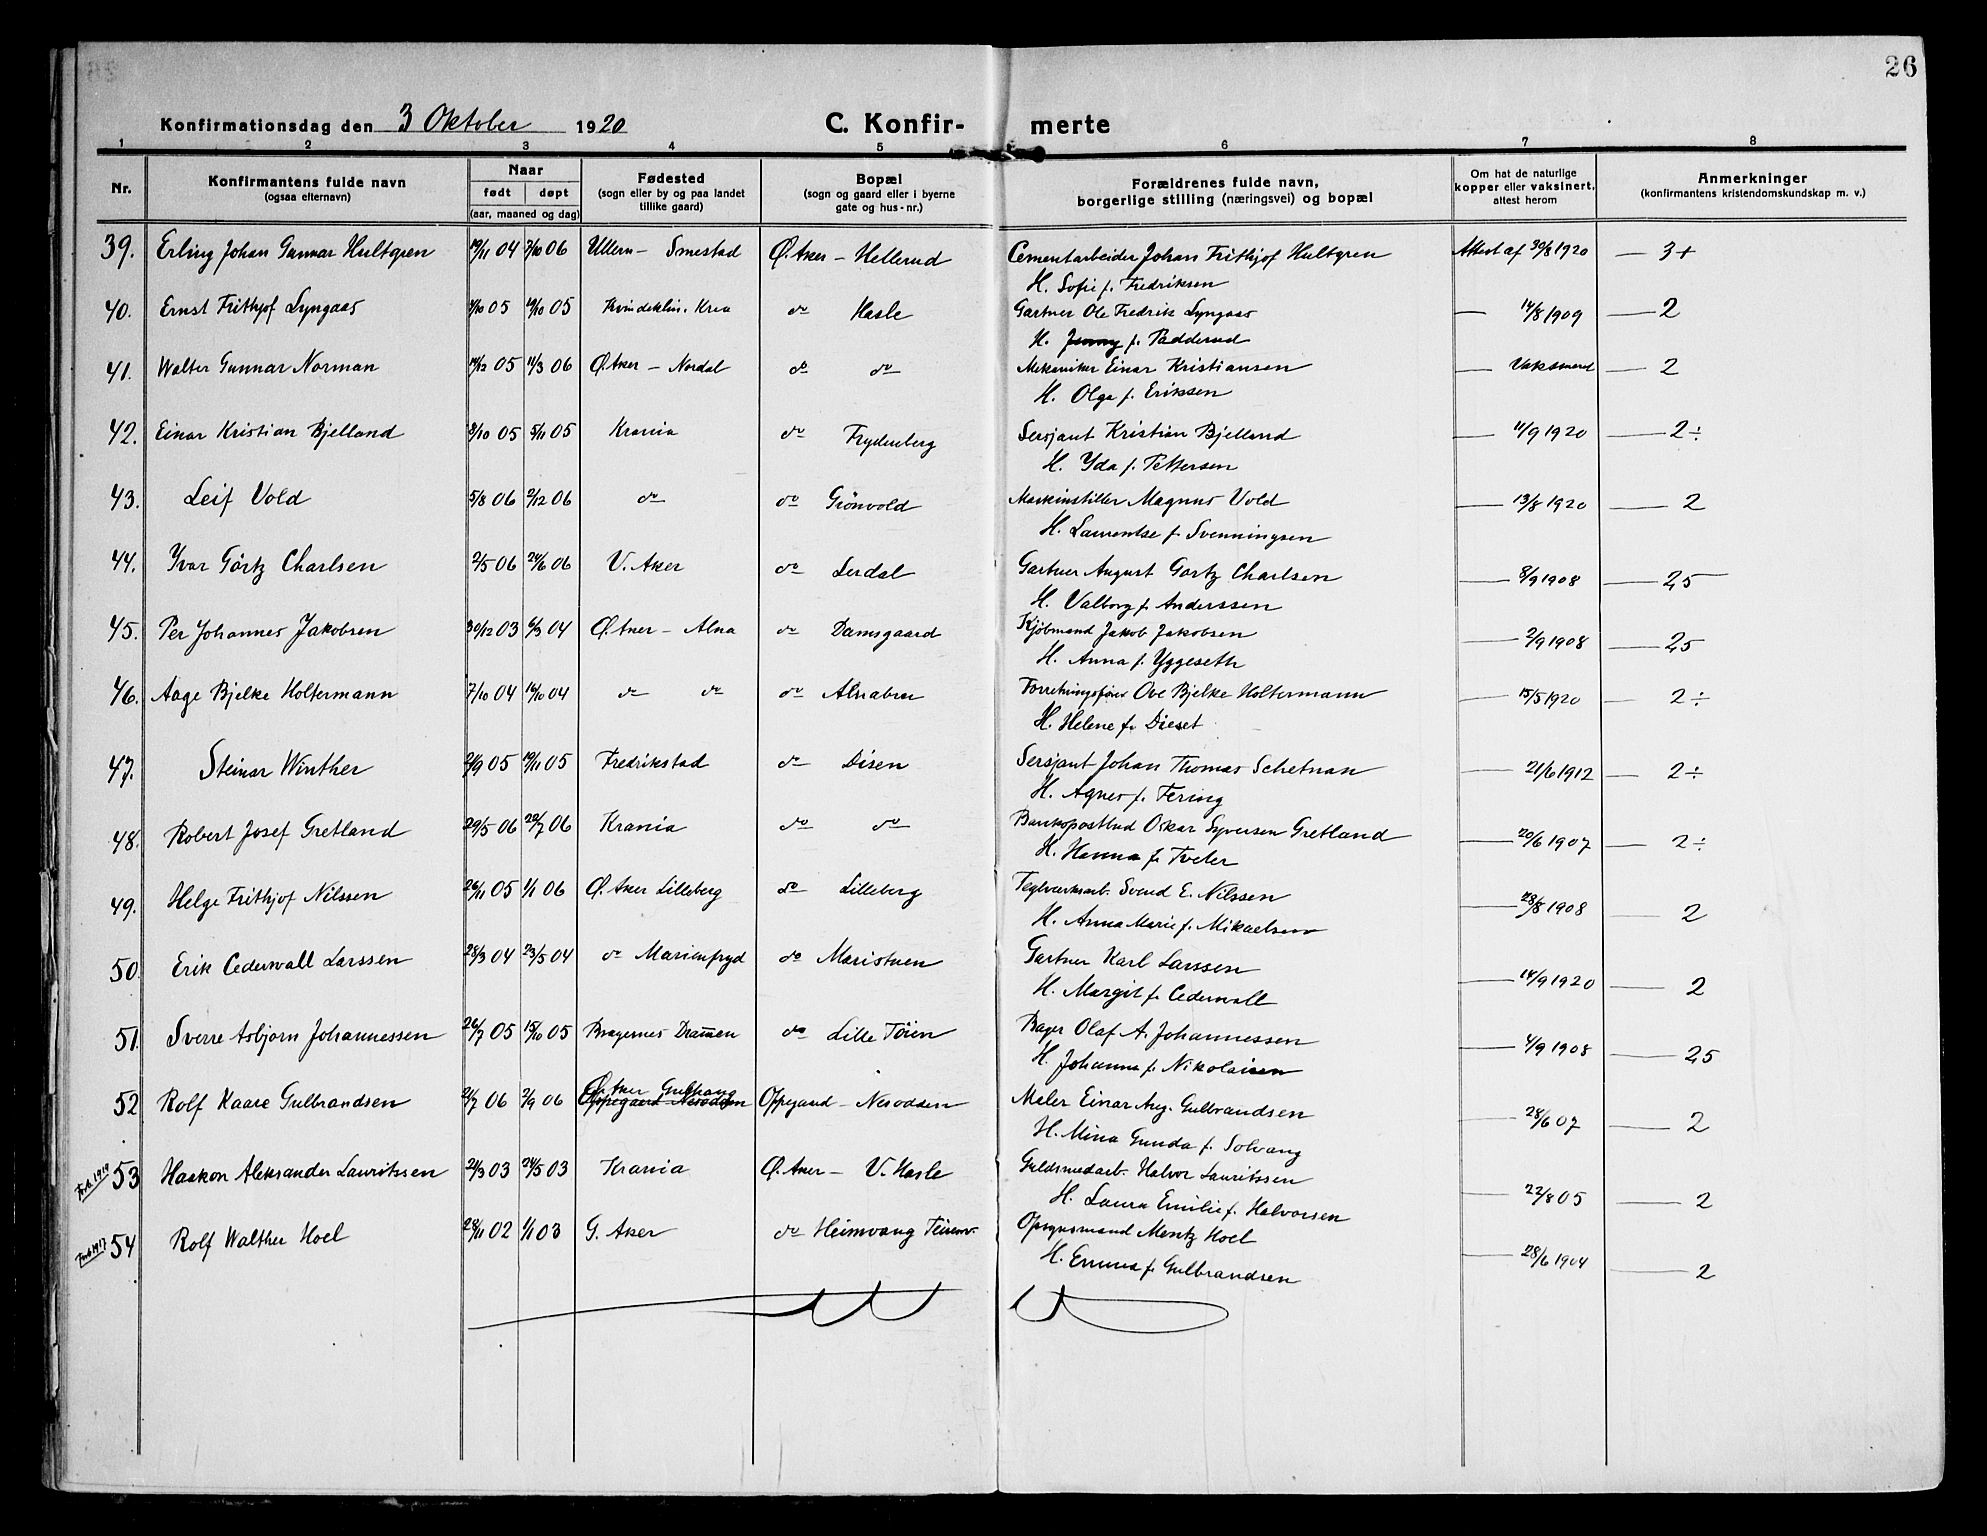 26
Konfirmationsdag den 3 Oktober 1920 C. Konfir- merte
1 2 3 4 5 6 7 8
Nr.
Konfirmantens fulde navn
(ogsaa efternavn)
Naar
født døpt
(aar, maaned og dag)
Fødested
(sogn eller by og paa landet
tillike gaard)
Bopæl
(sogn og gaard eller i byerne
gate og hus-nr.)
Forældrenes fulde navn,
borgerlige stilling (næringsvei) og bopæl
Om hat de naturlige
kopper eller vaksinert,
attest herom
Anmerkninger
(konfirmantens kristendomskundskap m. v.)
39. Erling Johan Gunnar Hultgren 19/11 04 7/10 06 Ullern - Smestad Ø. Aker - Hellerud Cementarbeider Johan Frithjof Hultgren Attest af 30/8 1920 — 3+
H. Sofie f. Fredriksen
40. Ernst Frithjof Lyngaas 05 19/10 05 Kvindeklin. Krea do Hasle Gartner Ole Fredrik Lyngaas — 14/8 1909 — 2
H. Jenny f. Padderud
41. Walter Gunnar Norman 19/12 05 11/3 06 Ø. Aker - Nordal do do Mekaniker Einar Kristiansen — Vaksinerd — 2
H. Olga f. Eriksen
42. Einar Kristian Bjelland 8/10 05 5/11 05 Krania do Frydenberg Sersjant Kristian Bjelland — 11/9 1920 — 2÷
H. Yda f. Pettersen
43. Leif Vold 5/8 06 2/12 06 do do Grönvold Maskinstiller Magnus Vold — 13/8 1920 — 2
H. Laurentse f. Svenningsen
44. Yvar Görtz Charlsen 2/5 06 24/6 06 V. Aker do Lerdal Gartner August Gortz Charlsen — 8/9 1908 — 2,5
H. Valborg f. Anderssen
45. Per Johannes Jakobsen 30/12 03 6/3 04 Ø. Aker - Alna do Damsgaard Kjøbmand Jakob Jakobsen — 2/9 1908 — 2,5
H. Anna f. Yggeseth
46. Aage Bjelke Holtermann 7/10 04 16/10 04 do do do Alnabru Forretningsfører Ove Bjelke Holtermann — 15/5 1920 — 2÷
H. Helene f. Dieset
47. Steinar Winther 2/9 05 19/11 05 Fredrikstad do Disen Sersjant Johan Thomas Schetnan — 21/6 1912 — 2÷
H. Agnes f. Fering
48. Robert Josef Gretland 29/5 06 22/7 06 Krania do do Bankopostbud Oskar Syversen Gretland — 20/6 1907 — 2÷
H. Hanna f. Tveter
49. Helge Frithjof Nilssen 26/11 05 1/1 06 Ø. Aker Lilleberg do Lilleberg Teglverksarb. Svend E. Nilssen — 28/8 1908 — 2
H. Anna Marie f. Mikaelsen
50. Erik Cederwall Larssen 28/3 04 23/5 04 do Marienfryd do Maristuen Gartner Karl Larssen — 14/9 1920 — 2
H. Margit f. Cederwall
51. Sverre Asbjørn Johannessen 26/7 05 15/10 05 Bragernes Drammen do Lille Töien Bager Olaf A. Johannessen — 4/9 1908 — 2,5
H. Johanna f. Nikolaisen
52 Rolf Kaare Gulbrandsen 21/7 06 2/9 06 Ø. Aker Oppegaard Nesodden Oppegaard - Nesodden Maler Einar Aug. Gulbrandsen — 28/6 07 — 2
H. Mina Gunda f. Solvang
Forb. 1919 53 Haakon Aleksander Lauritssen 21/3 03 24/5 03 Krania Ø. Aker - V. Hasle Guldsmedarb. Halvor Lauritssen — 22/8 05 — 2
H. Laura Emilie f. Halvorsen
Forb 1917 54 Rolf Walther Hoel 28/11 02 1/1 03 G. Aker do Heimvang Teisenv. Opsynsmand Mentz Hoel — 28/6 1904 — 2
H. Emma f. Gulbrandsen